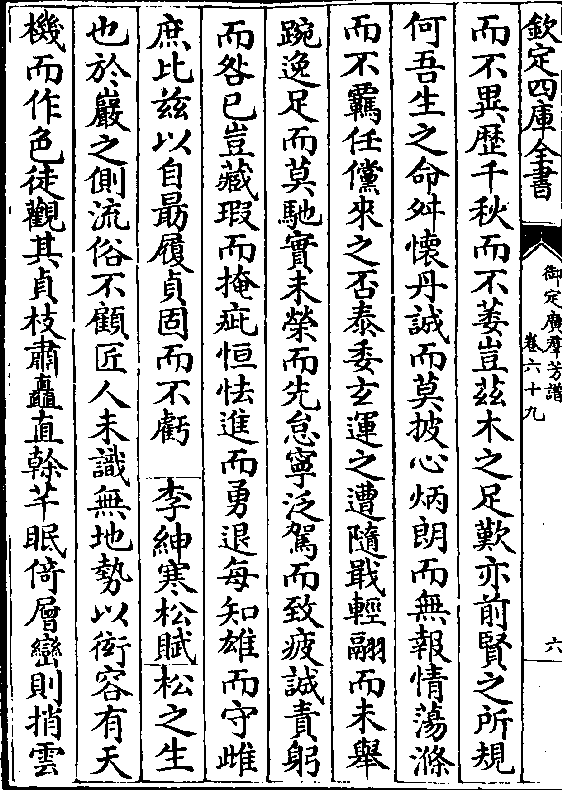 欽定四庫全書
御定廣群芳譜
卷六十九
六
而不異歷千秋而不萎豈茲木之足歎亦前賢之所規
何吾生之命舛懷丹誠而莫披心炳朗而無報情蕩滌
而不羈任儻來之否泰委玄運之遭隨戢輕翮而未舉
踠逸足而莫馳實未榮而先怠寧泛駕而致疲誠責躬
而咎已豈藏瑕而掩疵恒怯進而勇退每知雄而守雌
庶比茲以自勗履貞固而不虧 李紳寒松賦松之生
也於巖之側流俗不顧匠人未識無地勢以衒容有天
機而作色徒觀其貞枝肅矗直榦芊眠倚層巒則捎雲